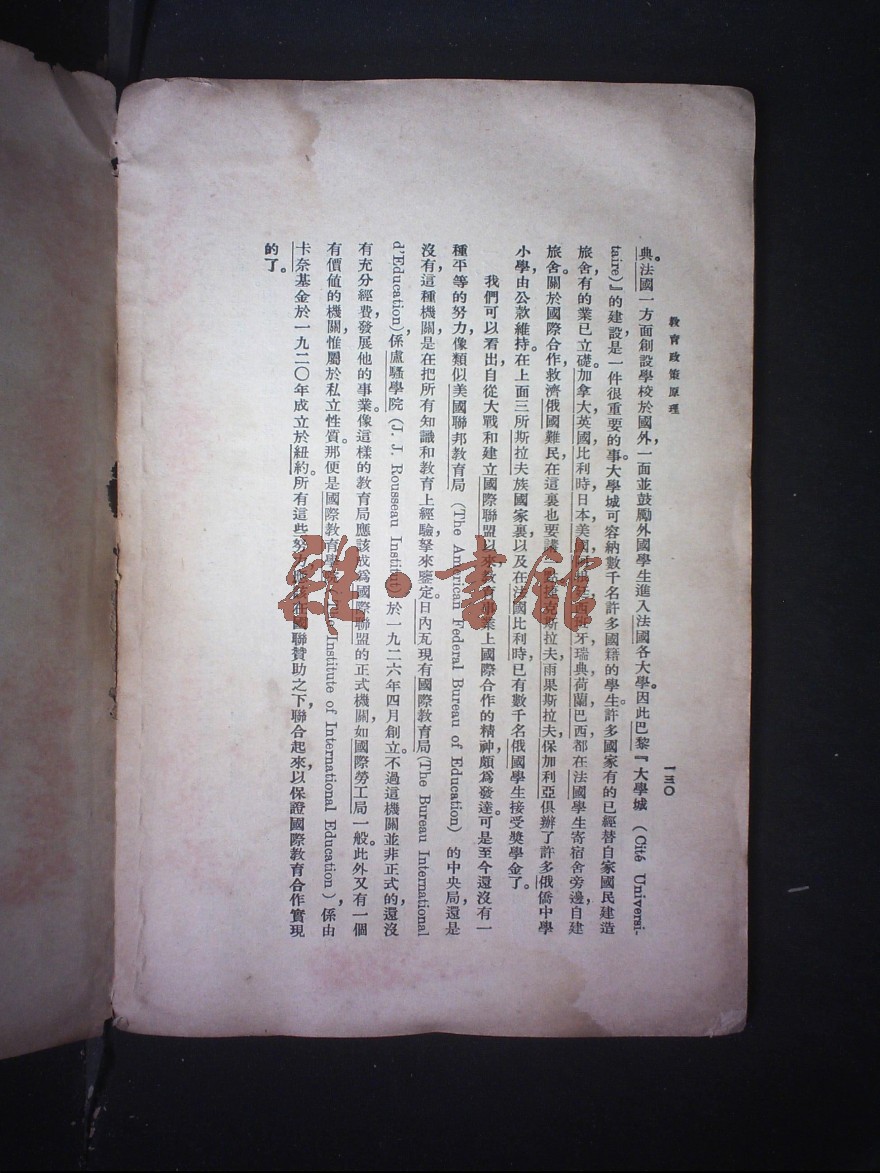 教育政策原理
一三〇
典。法國一方面創設學校於國外,一面並鼓勵外國學生進入法國各大學。因此巴黎『大學城 (Cité Universi-
taire)』的建設,是一件很重要的事。大學城可容納數千名許多國籍的學生。許多國家有的已經替自家國民建造
旅舍,有的業已立礎。加拿大,英國,比利時,日本,美國,西班牙,瑞典,荷蘭,巴西,都在法國學生寄宿舍旁邊自建
旅舍。關於國際合作救濟俄國難民,在這裏也要講捷克斯拉夫,雨果斯拉夫,保加利亞俱辦了許多俄僑中學
小學,由公款維持。在上面三所斯拉夫族國家裏,以及在法國比利時,已有數千名俄國學生接受獎學金了。
我們可以看出,自從大戰和建立國際聯盟以來,教育事業上國際合作的精神頗為發達。可是至今還沒有一
種平等的努力,像類似美國聯邦教育局 (The American Federal Bureau of Education) 的中央局,還是
沒有這種機關,是在把所有知識和教育上經驗拏來鑒定。日內瓦現有國際教育局(The Bureau International
d'Education),係盧騷學院 (J. J. Rousseau Institut) 於一九二六年四月創立。不過這機關並非正式的,還沒
有充分經費發展他的事業。像這樣的教育局應該成爲國際聯盟的正式機關,如國際勞工局一般。此外又有一個
有價値的機關惟屬於私立性質。那便是國際教育學院 (The Institute of International Education),係由
卡奈基金於一九二〇年成立於紐約。所有這些努力,應該在國聯贊助之下,聯合起來,以保證國際教育合作實現
的了。
雜·書館